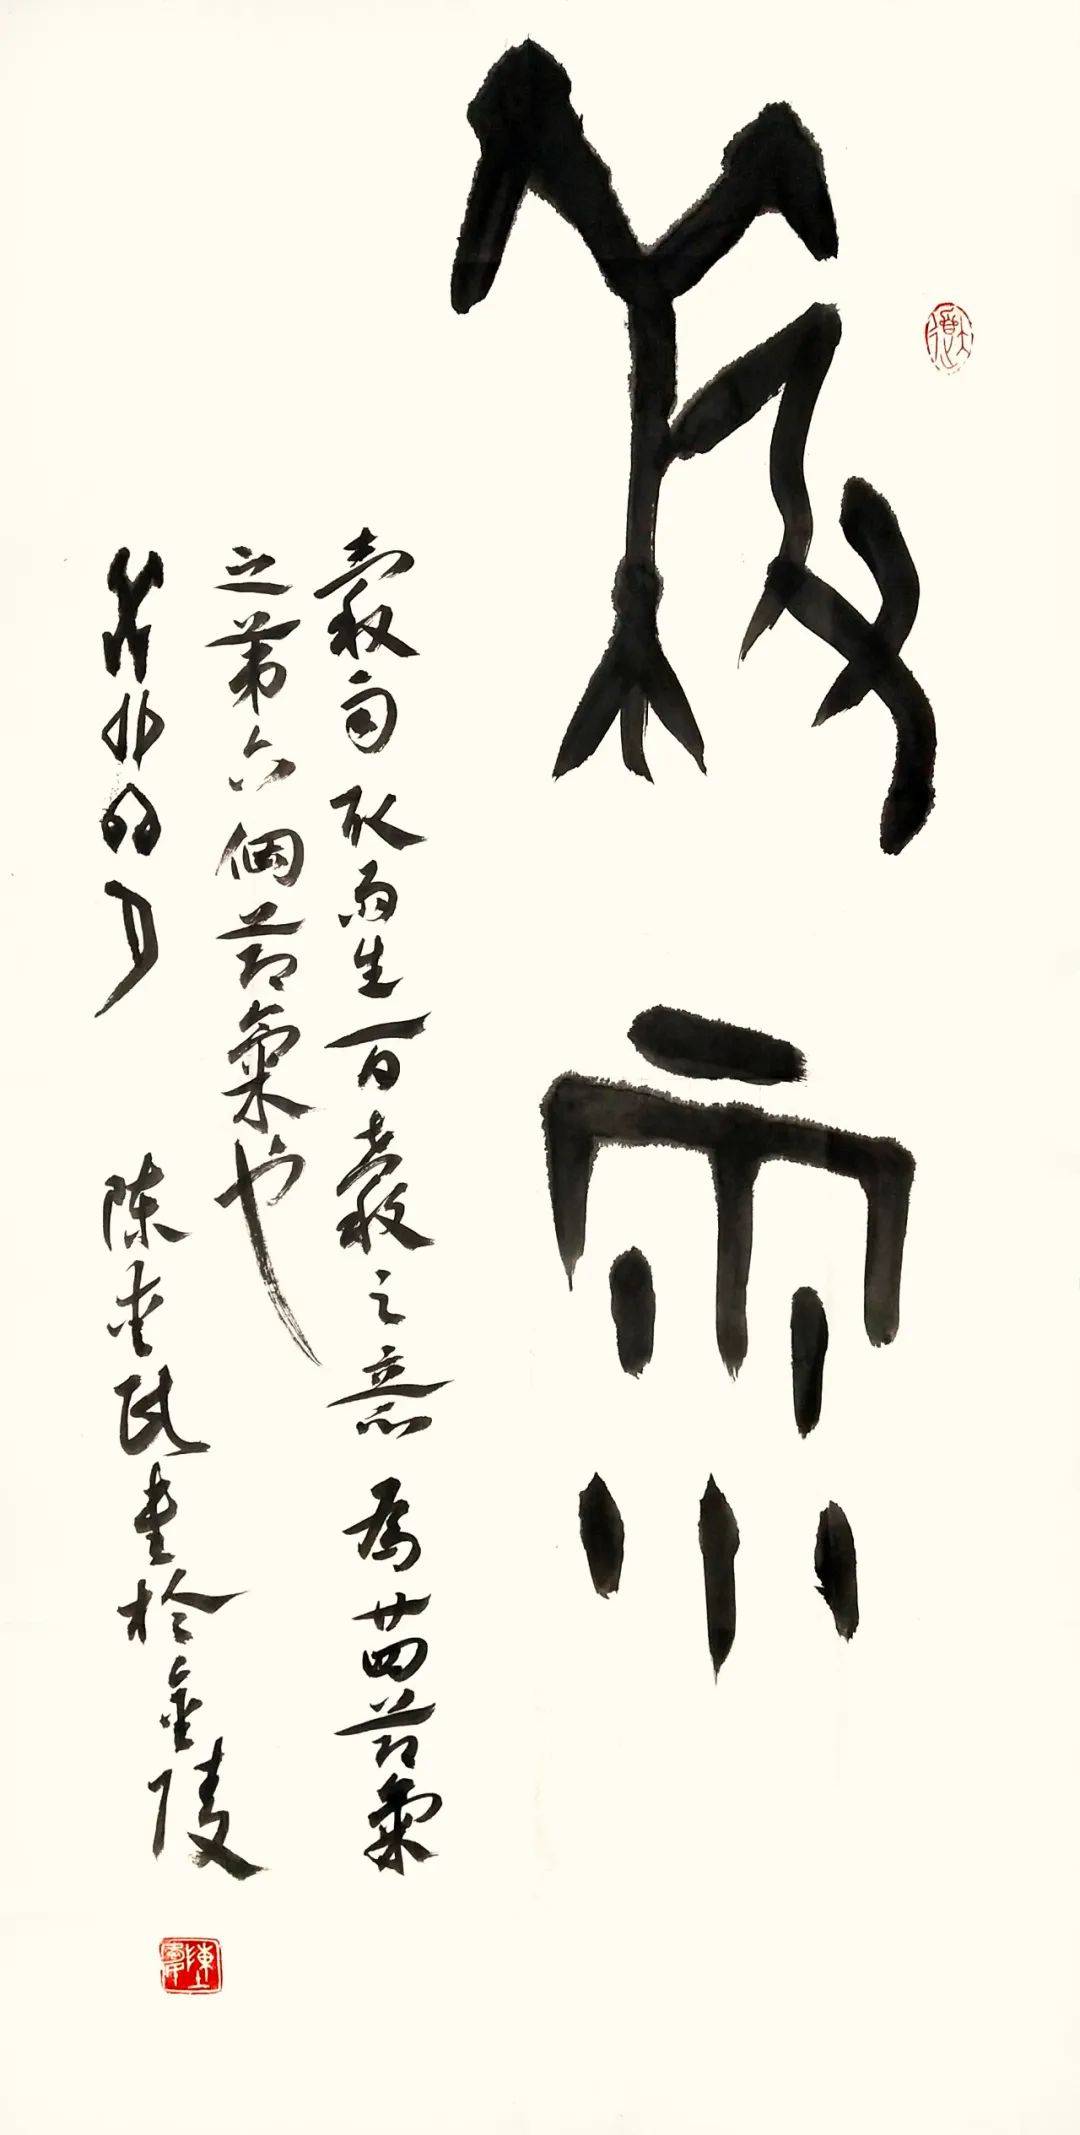 穀雨
穀雨取雨生百穀之意為廿四節氣
之第六個節氣也
陳 書於金陵